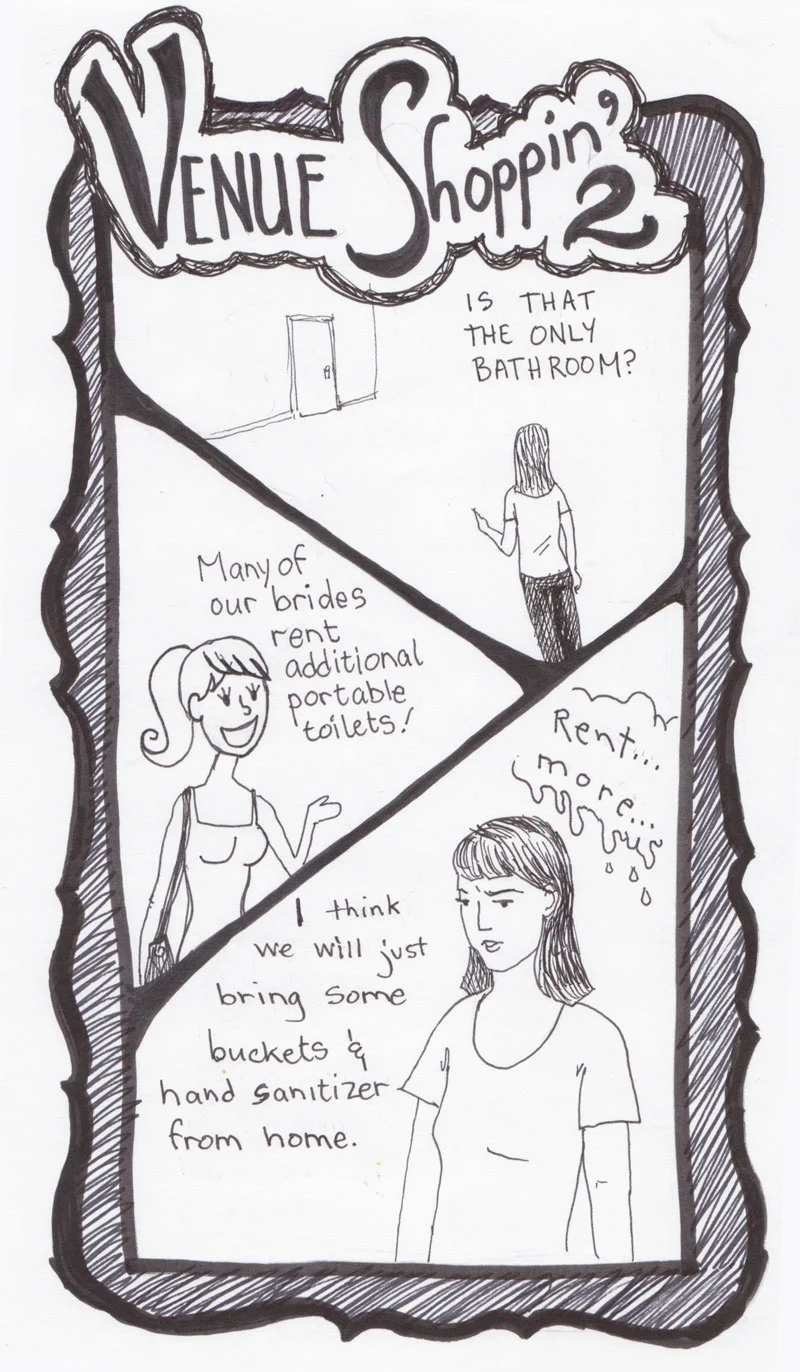 VENUE Shoppin' 2
IS THAT
THE ONLY
BATHROOM?
Many of
our brides
rent
additional
portable
toilets!
Rent...
more...
I think
we will just
bring some
buckets &
hand sanitizer
from home.